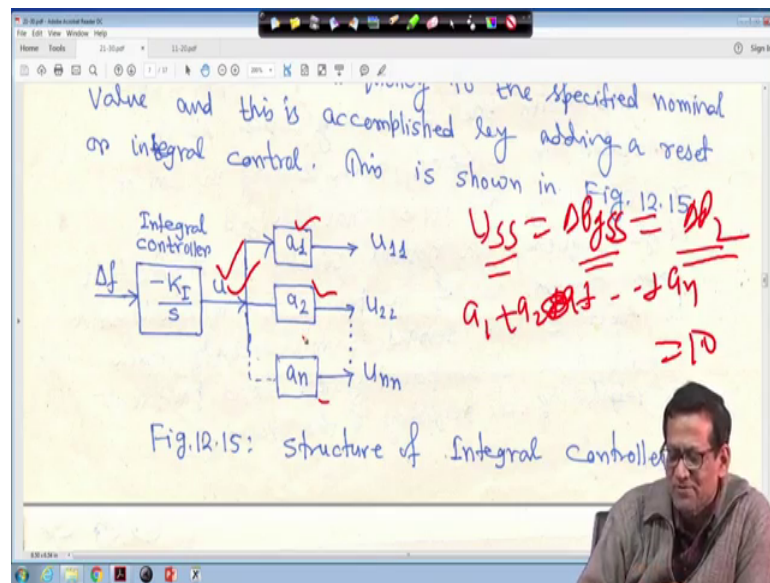 21-30.pdf - Adobe Acrobat Reader DC
File Edit View Window Help
Home Tools 21-30.pdf × 11-20.pdf Sign In
Value and this is accomplished by adding a reset
or integral control. This is shown in Fig. 12.15.
Integral
controller
Δf
-K_I
s
u
a1
u11
a2
u22
an
unn
U_SS = ΔPgSS = ΔP_L
a1 + a2 + - - + an
= 1.0
Fig.12.15: Structure of Integral controller